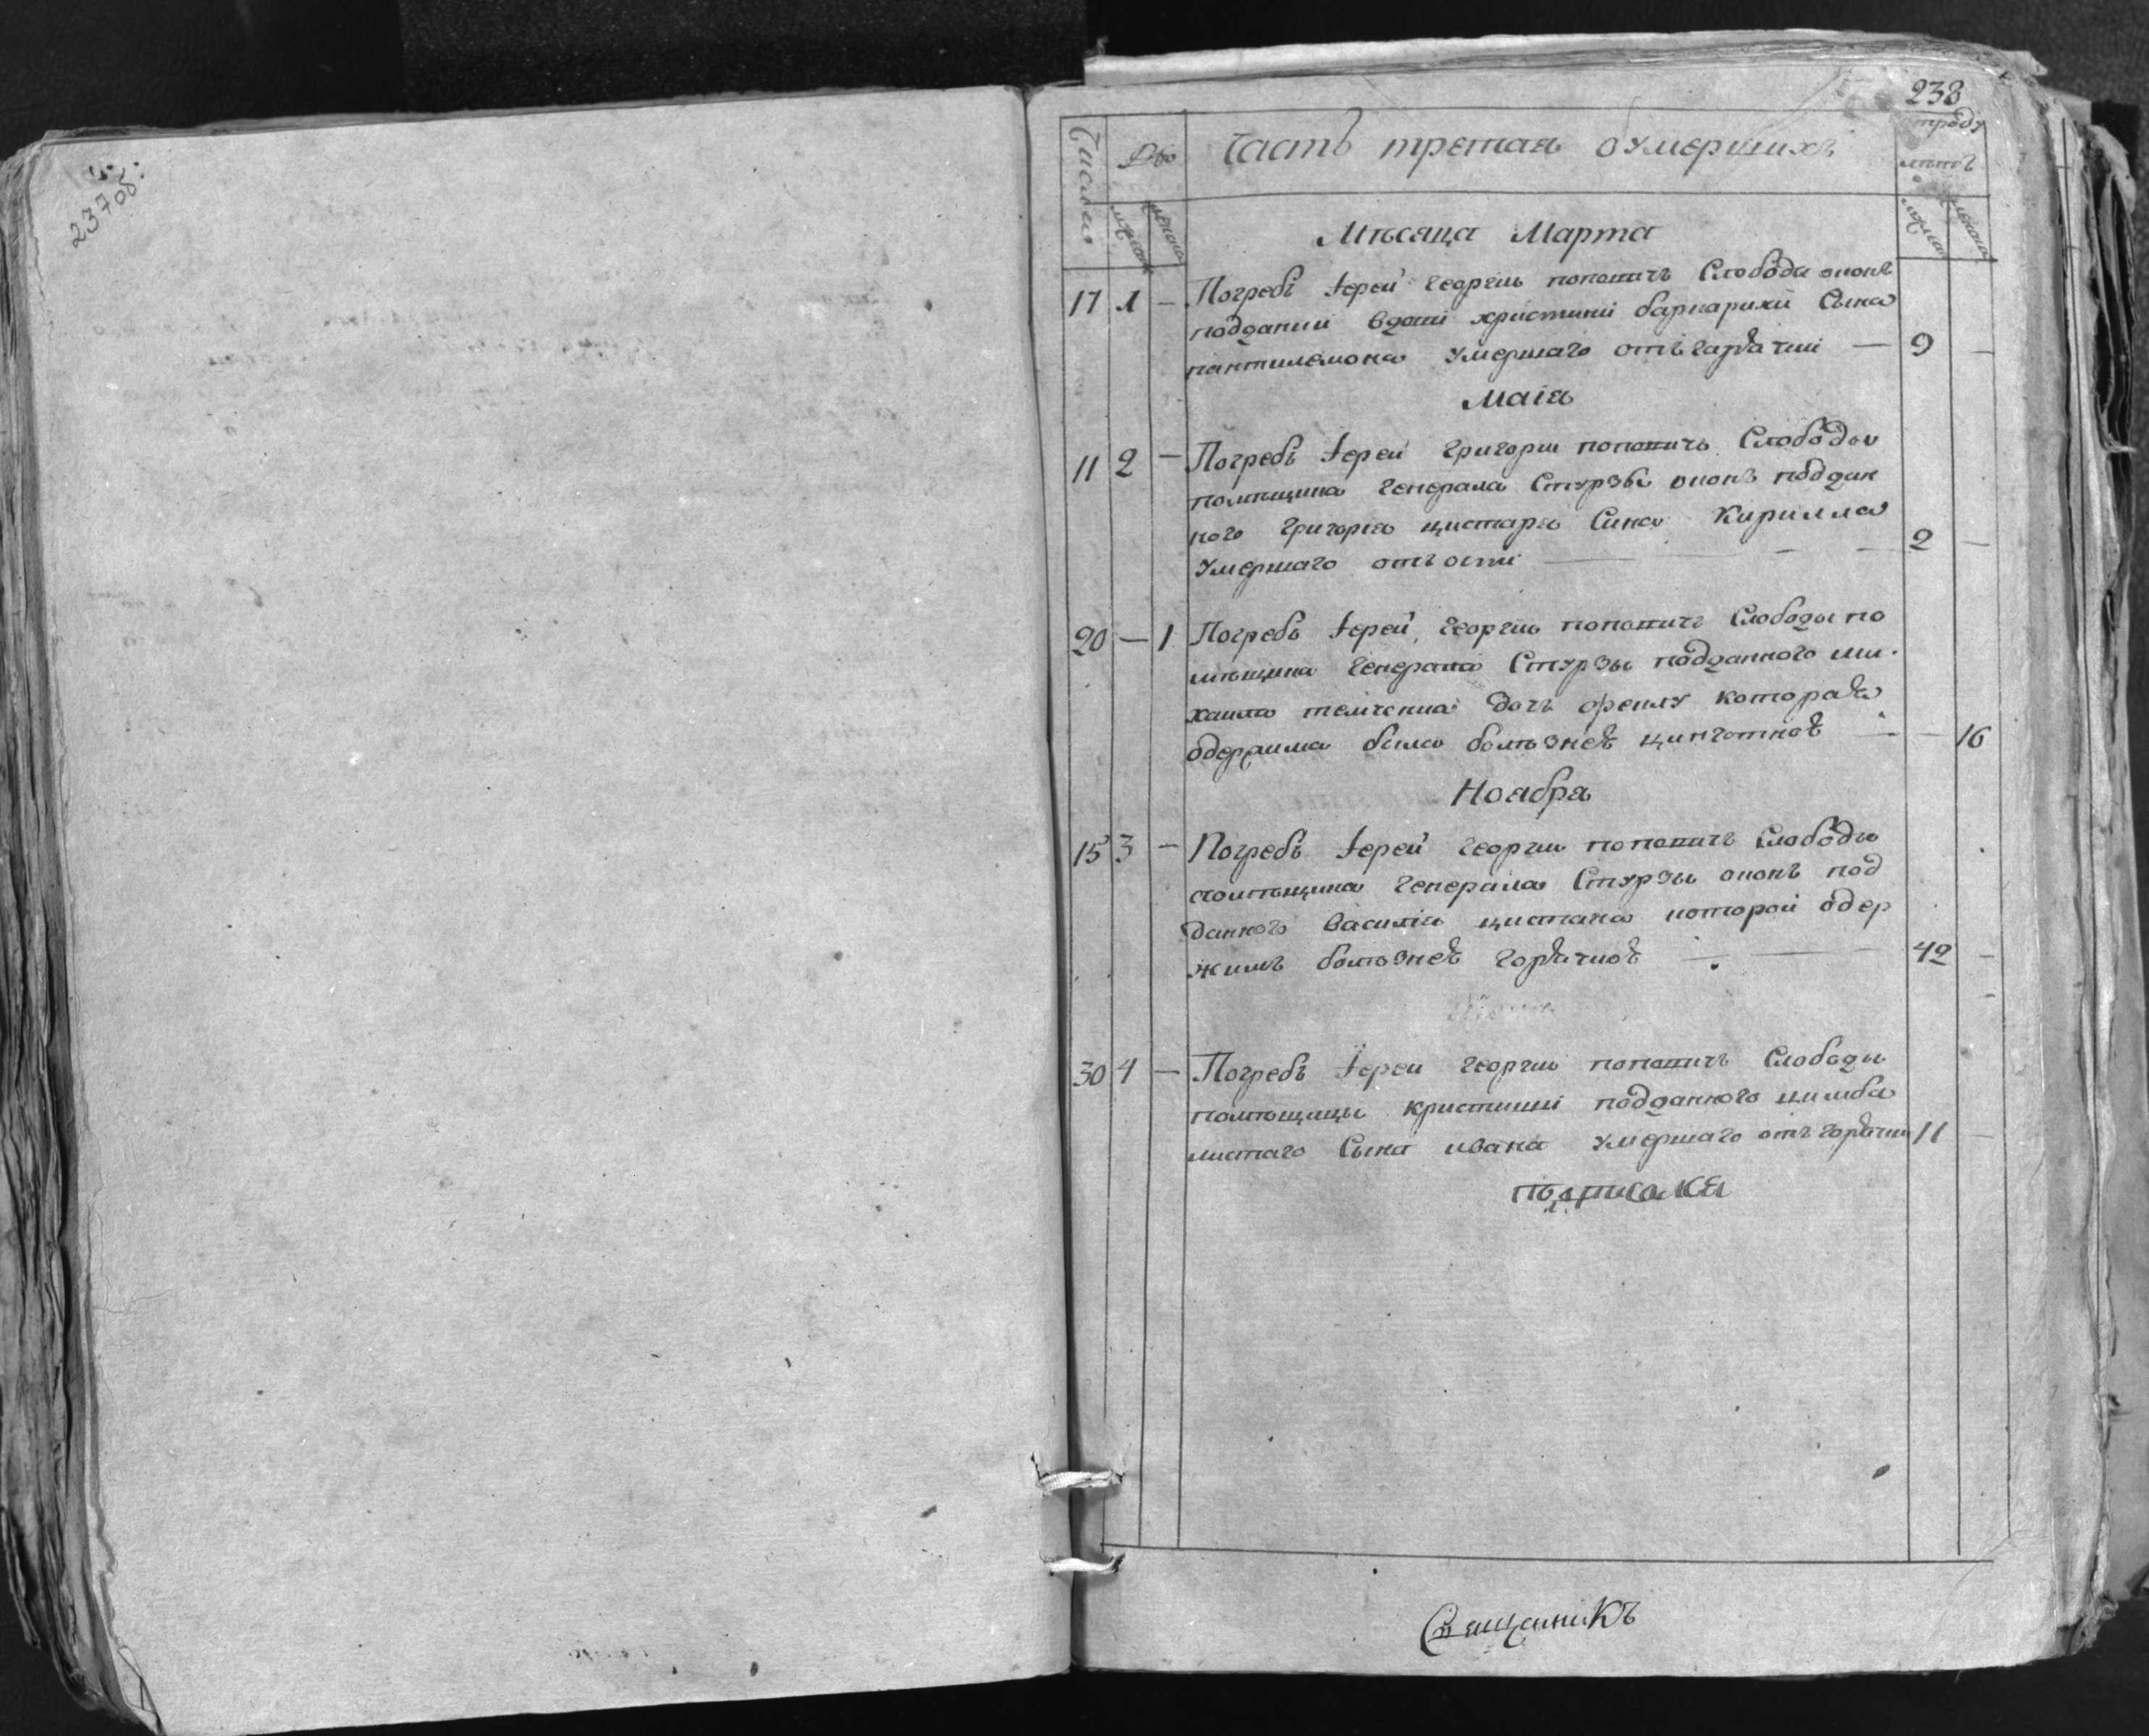 237об:
238
Числа
№
часть третая оумершихъ
лѣтъ
Мѣсяца Марта
17 1 — Погребъ Іерей георгии поповичъ Слободи
подданнои вдови християнии Сына
пантилемона умершаго отъ гарячки — 9 —
маія
11 2 — Погребъ Іереи григорги поповичъ Слободы
помѣщика генерала Стурзы онои поддан
ного григория цистаря Сина Кирилла
умершаго отъ оспи — — — 2 —
20 — 1 Погребъ Іерей георгии поповичъ Слободы по
мѣщика генерала Стурзы подданного ми
хаила дочъ которая
одержима была болѣзнею цинготною — — 16
Ноября
15 3 — Погребъ Іерей георгии поповичъ Слободы
помѣщика генерала Стурзы онои под
данного василия которой одер
жимъ болѣзнею горячкою — — 42 —
30 4 — Погребъ Іереи георгии поповичъ Слободы
помѣщицы кристинии подданного цимба
листаго Сына ивана умершаго отъ горячки 11 —
подписалъ
Священникъ